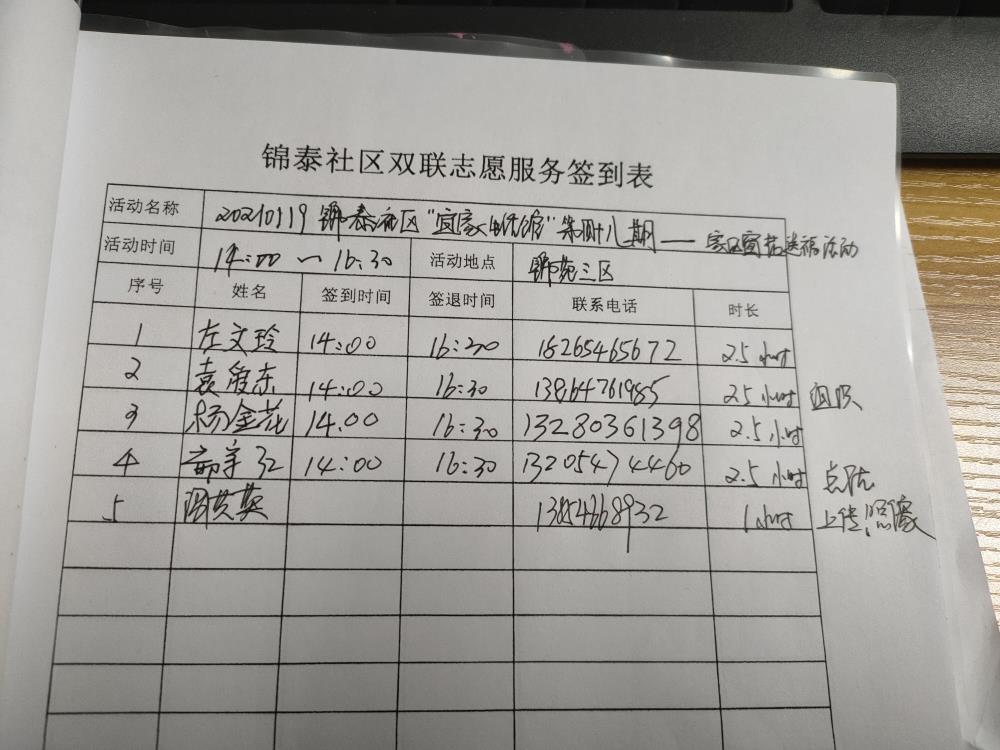 锦泰社区双联志愿服务签到表
活动名称 20210119 锦泰社区"宜家生活馆"第四十八期——窗花送福活动
活动时间 14:00～16:30 活动地点 锦苑三区
序号 姓名 签到时间 签退时间 联系电话 时长
1 左文玲 14:00 16:30 18265465672 2.5小时
2 袁俊东 14:00 16:30 13864761985 2.5小时 组队
3 杨金花 14.00 16:30 13280361398 2.5小时
4 14:00 16:30 13205474460 2.5小时
5 周其英 13854668932 1小时 上传照像